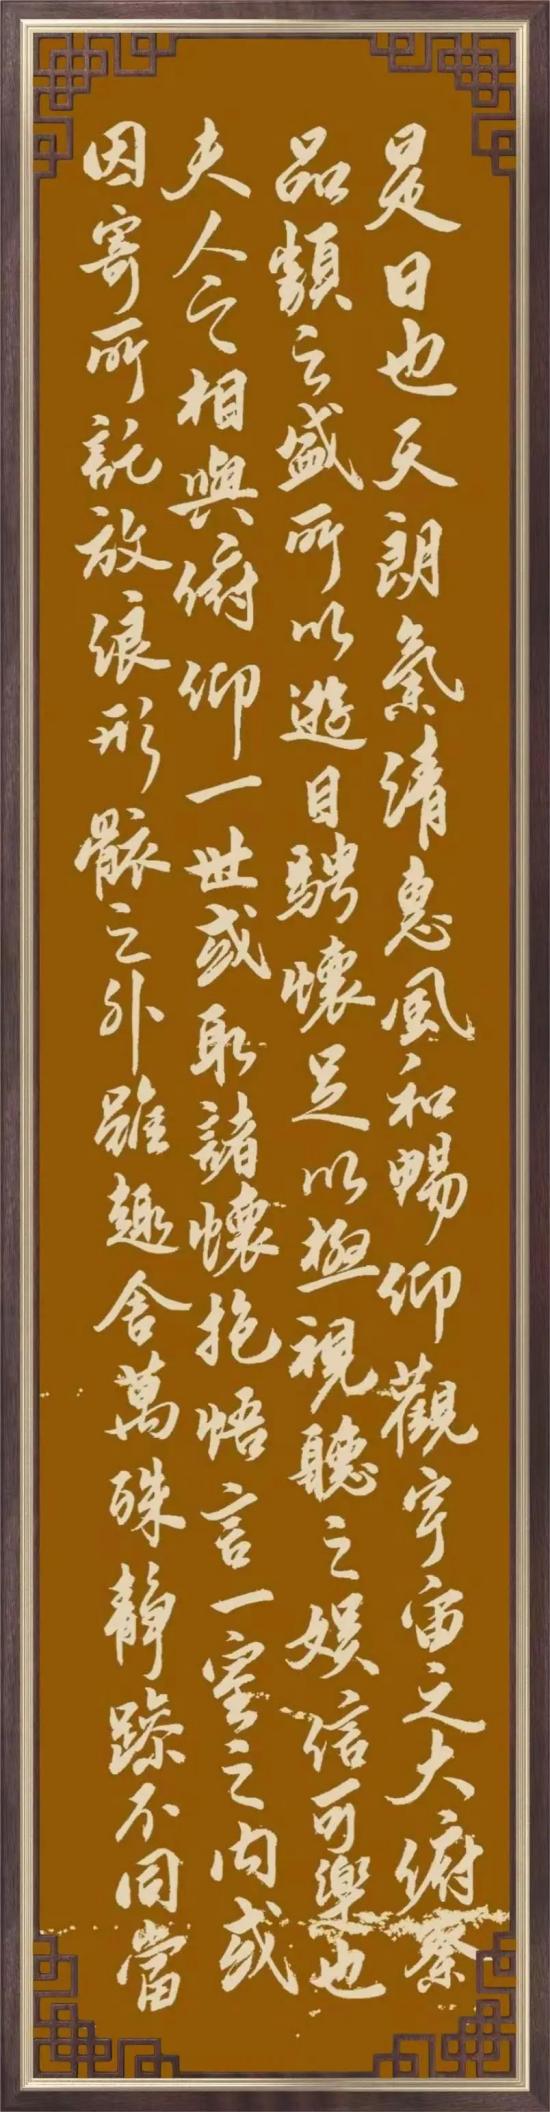 是日也天朗氣清惠風和暢仰觀宇宙之大俯察
品類之盛所以遊目騁懷足以極視聽之娛信可樂也
夫人之相與俯仰一世或取諸懷抱悟言一室之內或
因寄所託放浪形骸之外雖趣舍萬殊靜躁不同當